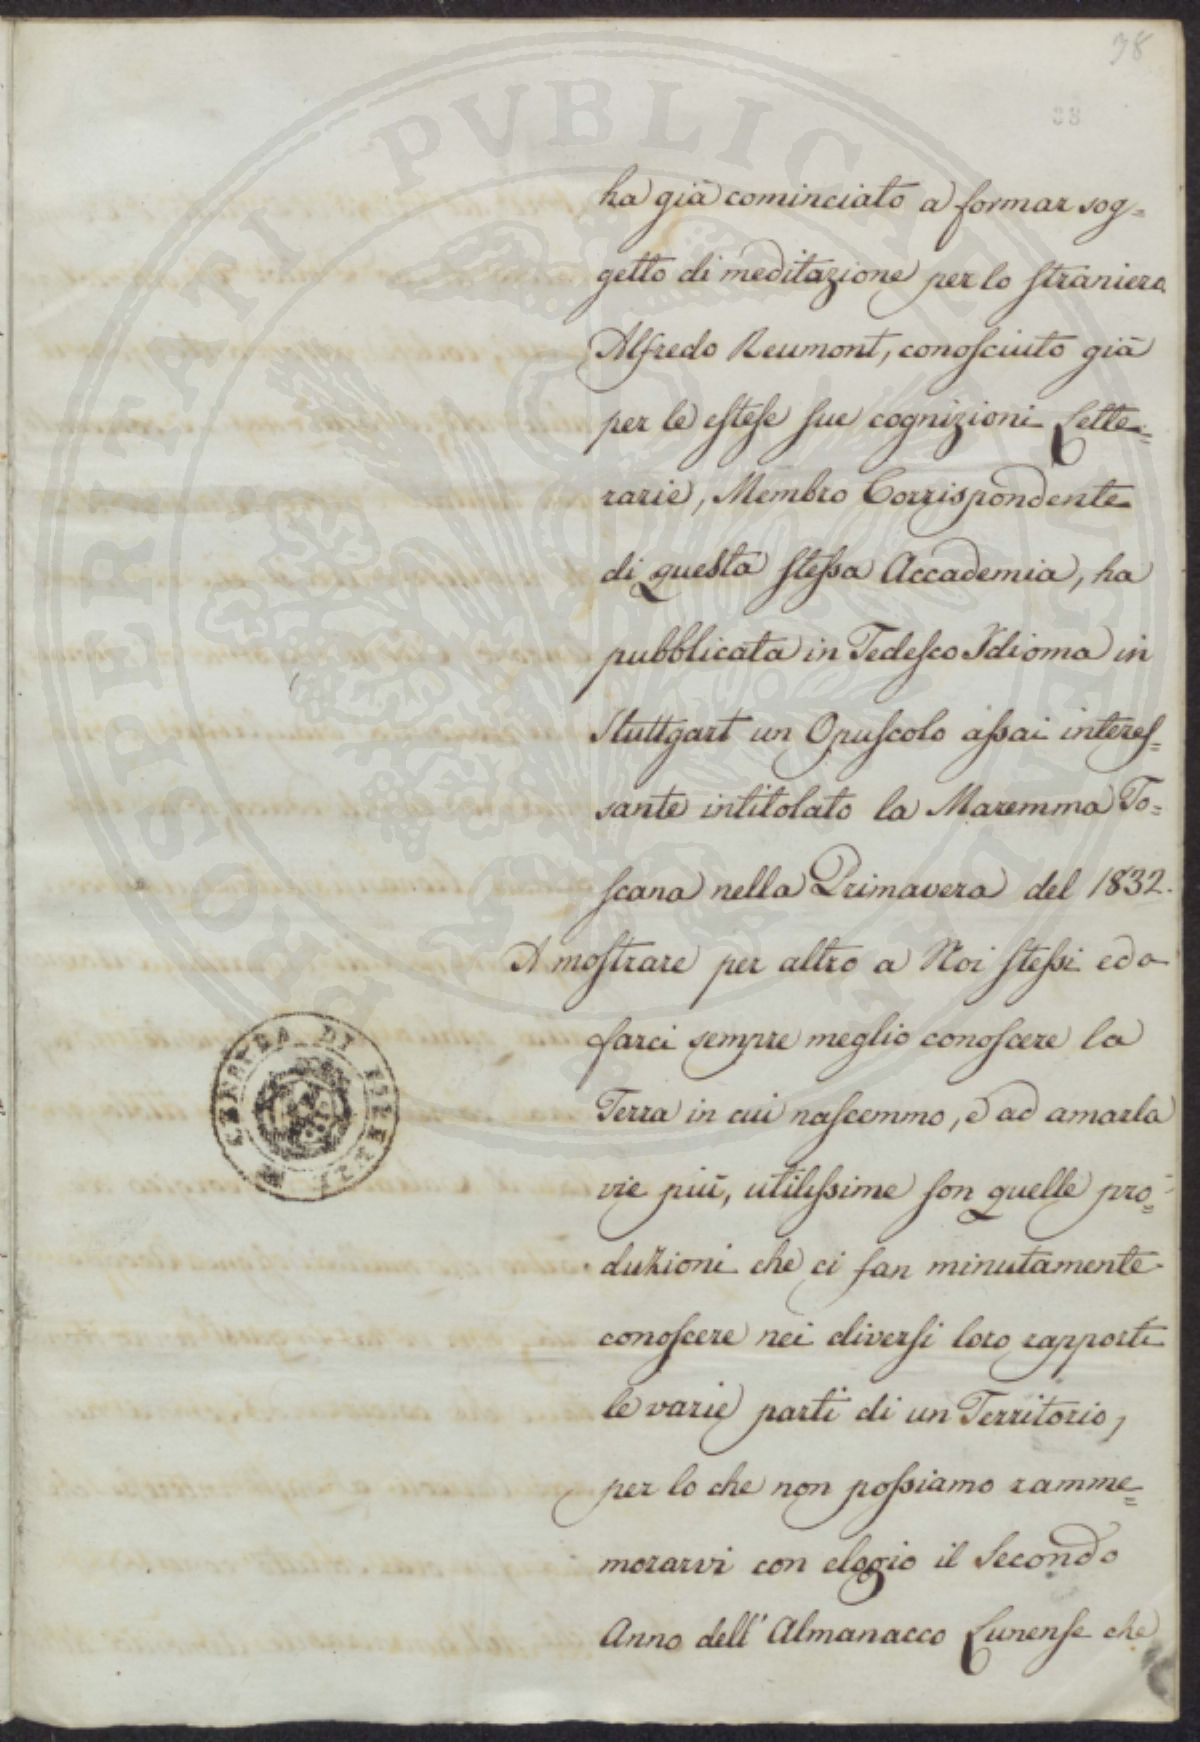 38
88
ha già cominciato a formar sog=
getto di meditazione per lo straniero
Alfredo Reumont, conosciuto già
per le estese sue cognizioni Lette=
rarie, Membro Corrispondente
di questa stessa Accademia, ha
pubblicata in Tedesco Idioma in
Stuttgart un Opuscolo assai interes=
sante intitolato la Maremma To=
scana nella Primavera del 1832.
A mostrare per altro a Noi stessi ed a
farci sempre meglio conoscere la
Terra in cui nascemmo, e ad amarla
vie più, utilissime son quelle pro=
duzioni che ci fan minutamente
conoscere nei diversi loro rapporti
le varie parti di un Territorio,
per lo che non possiamo ramme=
morarvi con elogio il Secondo
Anno dell' Almanacco Lunense che
PROSPERITATI PVBLICAE AVGENDAE